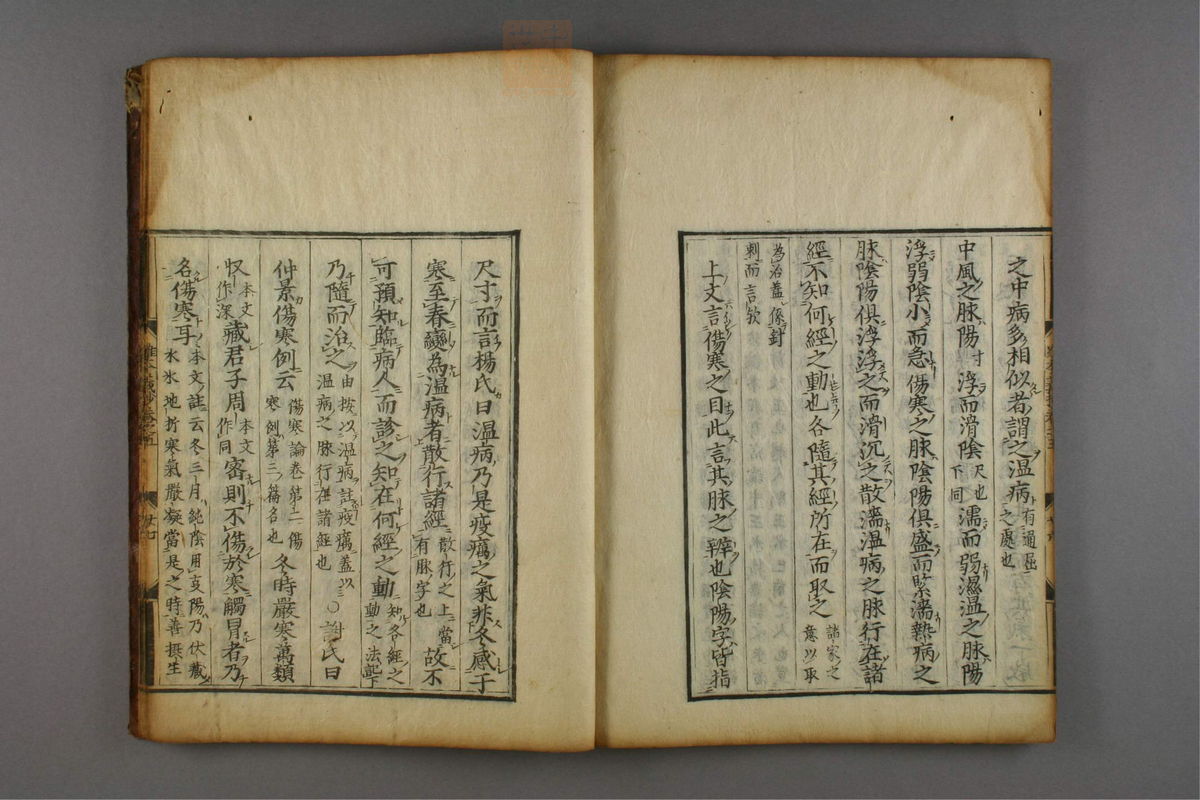 之中病多相似者謂之温病有過屈之處也
中風之脉陽寸浮而滑陰尺也下同濡而弱濕温之脉陽
浮弱陰小而急傷寒之脉陰陽俱盛而緊濇熱病之
脉陰陽俱浮浮之而滑沉之散濇温病之脉行在諸
經不知何經之動也各隨其經所在而取之諸家之意以取
為治蓋係封刺而言欤
上文言傷寒之目此言其脉之辨也陰陽字皆指
尺寸而言楊氏曰温病乃是疫癘之氣非冬感于
寒至春變為温病者散行諸經散行之上當有脉字也故不
可預知臨病人而診之知在何經之動知各經之動之法
乃隨而治之由按以温病註疫癘蓋以温病之脉行在諸經也○謝氏曰
仲景傷寒例云傷寒論卷第二傷寒例第三篇名也冬時嚴寒萬類
収本文作深藏君子周本文作固密則不傷於寒觸冒者乃
名傷寒耳本文註云冬三月純陰用事陽乃伏藏水氷地折寒氣散凝當是之時善摂生